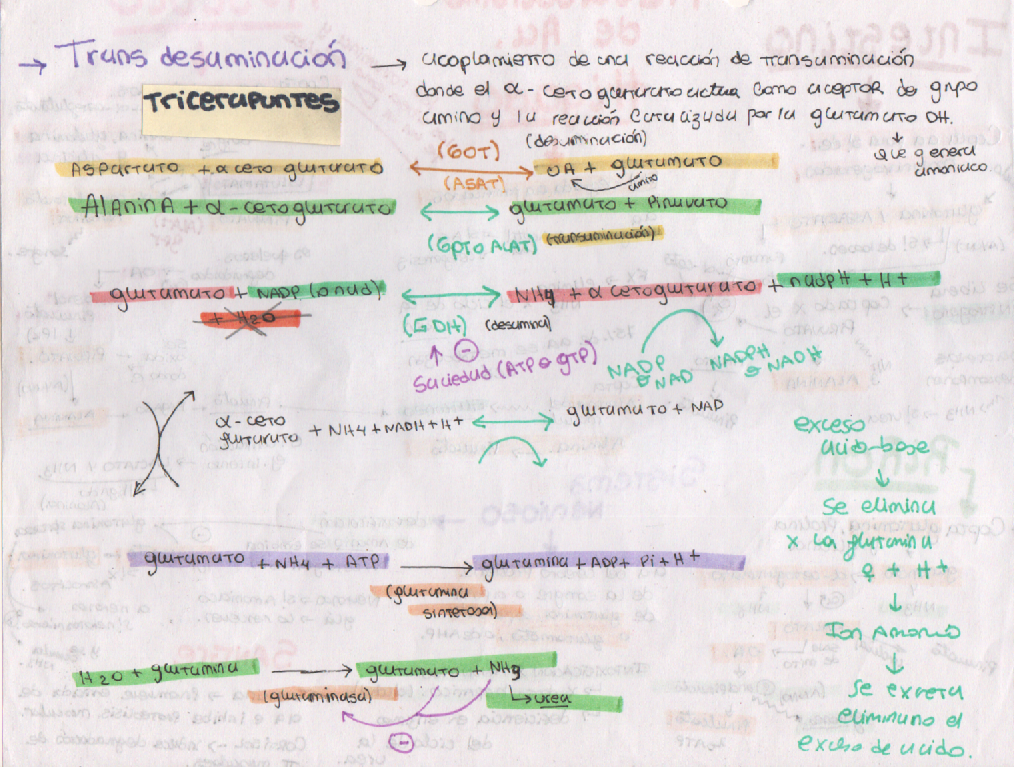 → Trans desaminación → acoplamiento de una reacción de transaminación
donde el α-cetoglutarato actua como aceptor de grupo
amino y la reacción catalizada por la glutamato DH.
Tricerapuntes
(desaminación)
↓
que genera
amoniaco.
Aspartato + α cetoglutarato ⟷ OA + glutamato
(GOT)
(ASAT)
amino
Alanina + α-cetoglutarato ⟷ glutamato + Piruvato
(Gpt o ALAT) (transaminación)
glutamato + NADP (o nad) ⟷ NH4 + α cetoglutarato + nadpH + H+
+ H2O
(GDH) (desamina)
↑ ⊖
Saciedad (ATP o GTP)
NADP
o NAD
NADPH
o NADH
α-ceto
glutarato + NH4 + NADH + H+ ⟷ glutamato + NAD
glutamato + NH4 + ATP → glutamina + ADP + Pi + H+
(glutamina
sintetasa)
H2O + glutamina → glutamato + NH4
(glutaminasa)
↳ urea
⊖
exceso
acido-base
↓
Se elimina
x la glutamina
+ H+
↓
Ion Amonio
↓
Se excreta
eliminano el
exceso de acido.